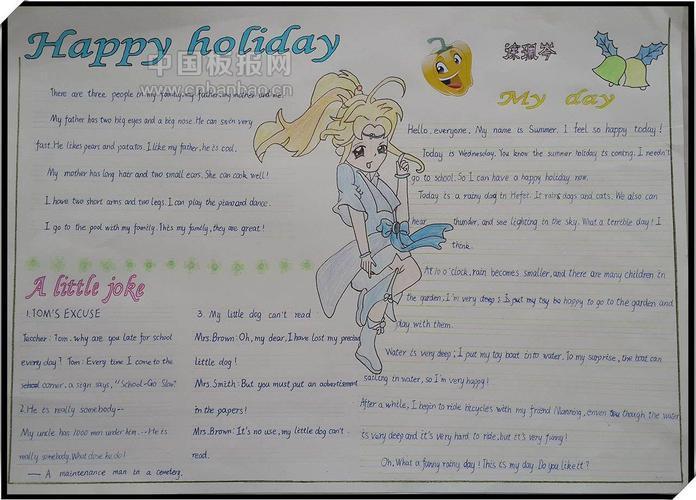 Happy holiday
中国板报网
www.cnbanbao.cn
There are three people in my family, my father, my mother and me.
My father has two big eyes and a big nose. He can swin very
fast. He likes pears and potatos. I like my father, he is cool.
My mother has long hair and two small ears. She can cook well!
I have two short arms and two legs. I can play the piano and dance.
I go to the pool with my family. This my family, they are great!
A little joke
1. TOM'S EXCUSE
Teacher: Tom. why are you late for school
every day? Tom: Every time I come to the
school corner, a sign says, "School-Go Slow"
2. He is really somebody--
My uncle has 1000 men under him. --He is
really somebody. What dose he do?
— A maintenance man in a cemetery.
3. My little dog can't read
Mrs. Brown: Oh, my dear, I have lost my precious
little dog!
Mrs. Smith: But you must put an advertisement
in the papers!
Mrs. Brown: It's no use, my little dog can't.
read.
My day
Hello, everyone. My name is Summer. I feel so happy today!
Today is Wednesday. You know the summer holiday is coming. I needn't
go to school. So I can have a happy holiday now.
Today is a rainy dag in Hefei. It rains dogs and cats. We also can
hear thunder, and see lighting in the sky. What a terrible day! I
think.
At 10 o'clock, rain becomes smaller, and there are many children in
the garden, I'm very happy to go to the garden and
play with them.
Water is very deep; I put my toy boat into water. To my surprise, the boat can
sailing in water, so I'm very happy!
After a while, I begin to ride bicycles with my friend Manning, enven though the water
is very deep and it's very hard to ride, but it's very funny!
Oh, What a funny rainy day! This is my day. Do you like it?